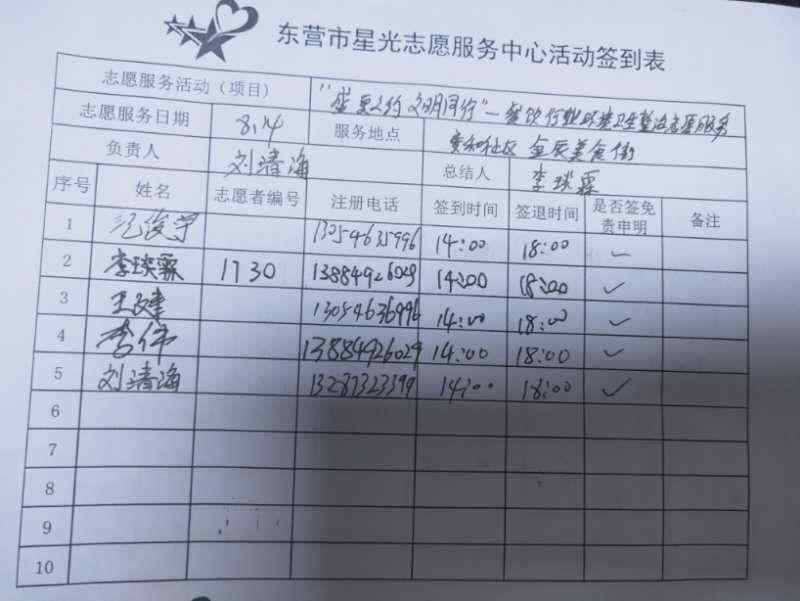 东营市星光志愿服务中心活动签到表
志愿服务活动（项目） "盛夏之约 文明同行"—餐饮行业环境卫生整治志愿服务
志愿服务日期 8.14 服务地点 安和社区 金辰美食街
负责人 刘清海 总结人 李琰霖
序号 姓名 志愿者编号 注册电话 签到时间 签退时间 是否签免责申明 备注
1 13054635996 14:00 18:00 ✓
2 李琰霖 1730 13884926029 14:00 18:00 ✓
3 王建 13054636996 14:00 18:00 ✓
4 李伟 13884926029 14:00 18:00 ✓
5 刘清海 13287323399 14:00 18:00 ✓
6
7
8
9
10